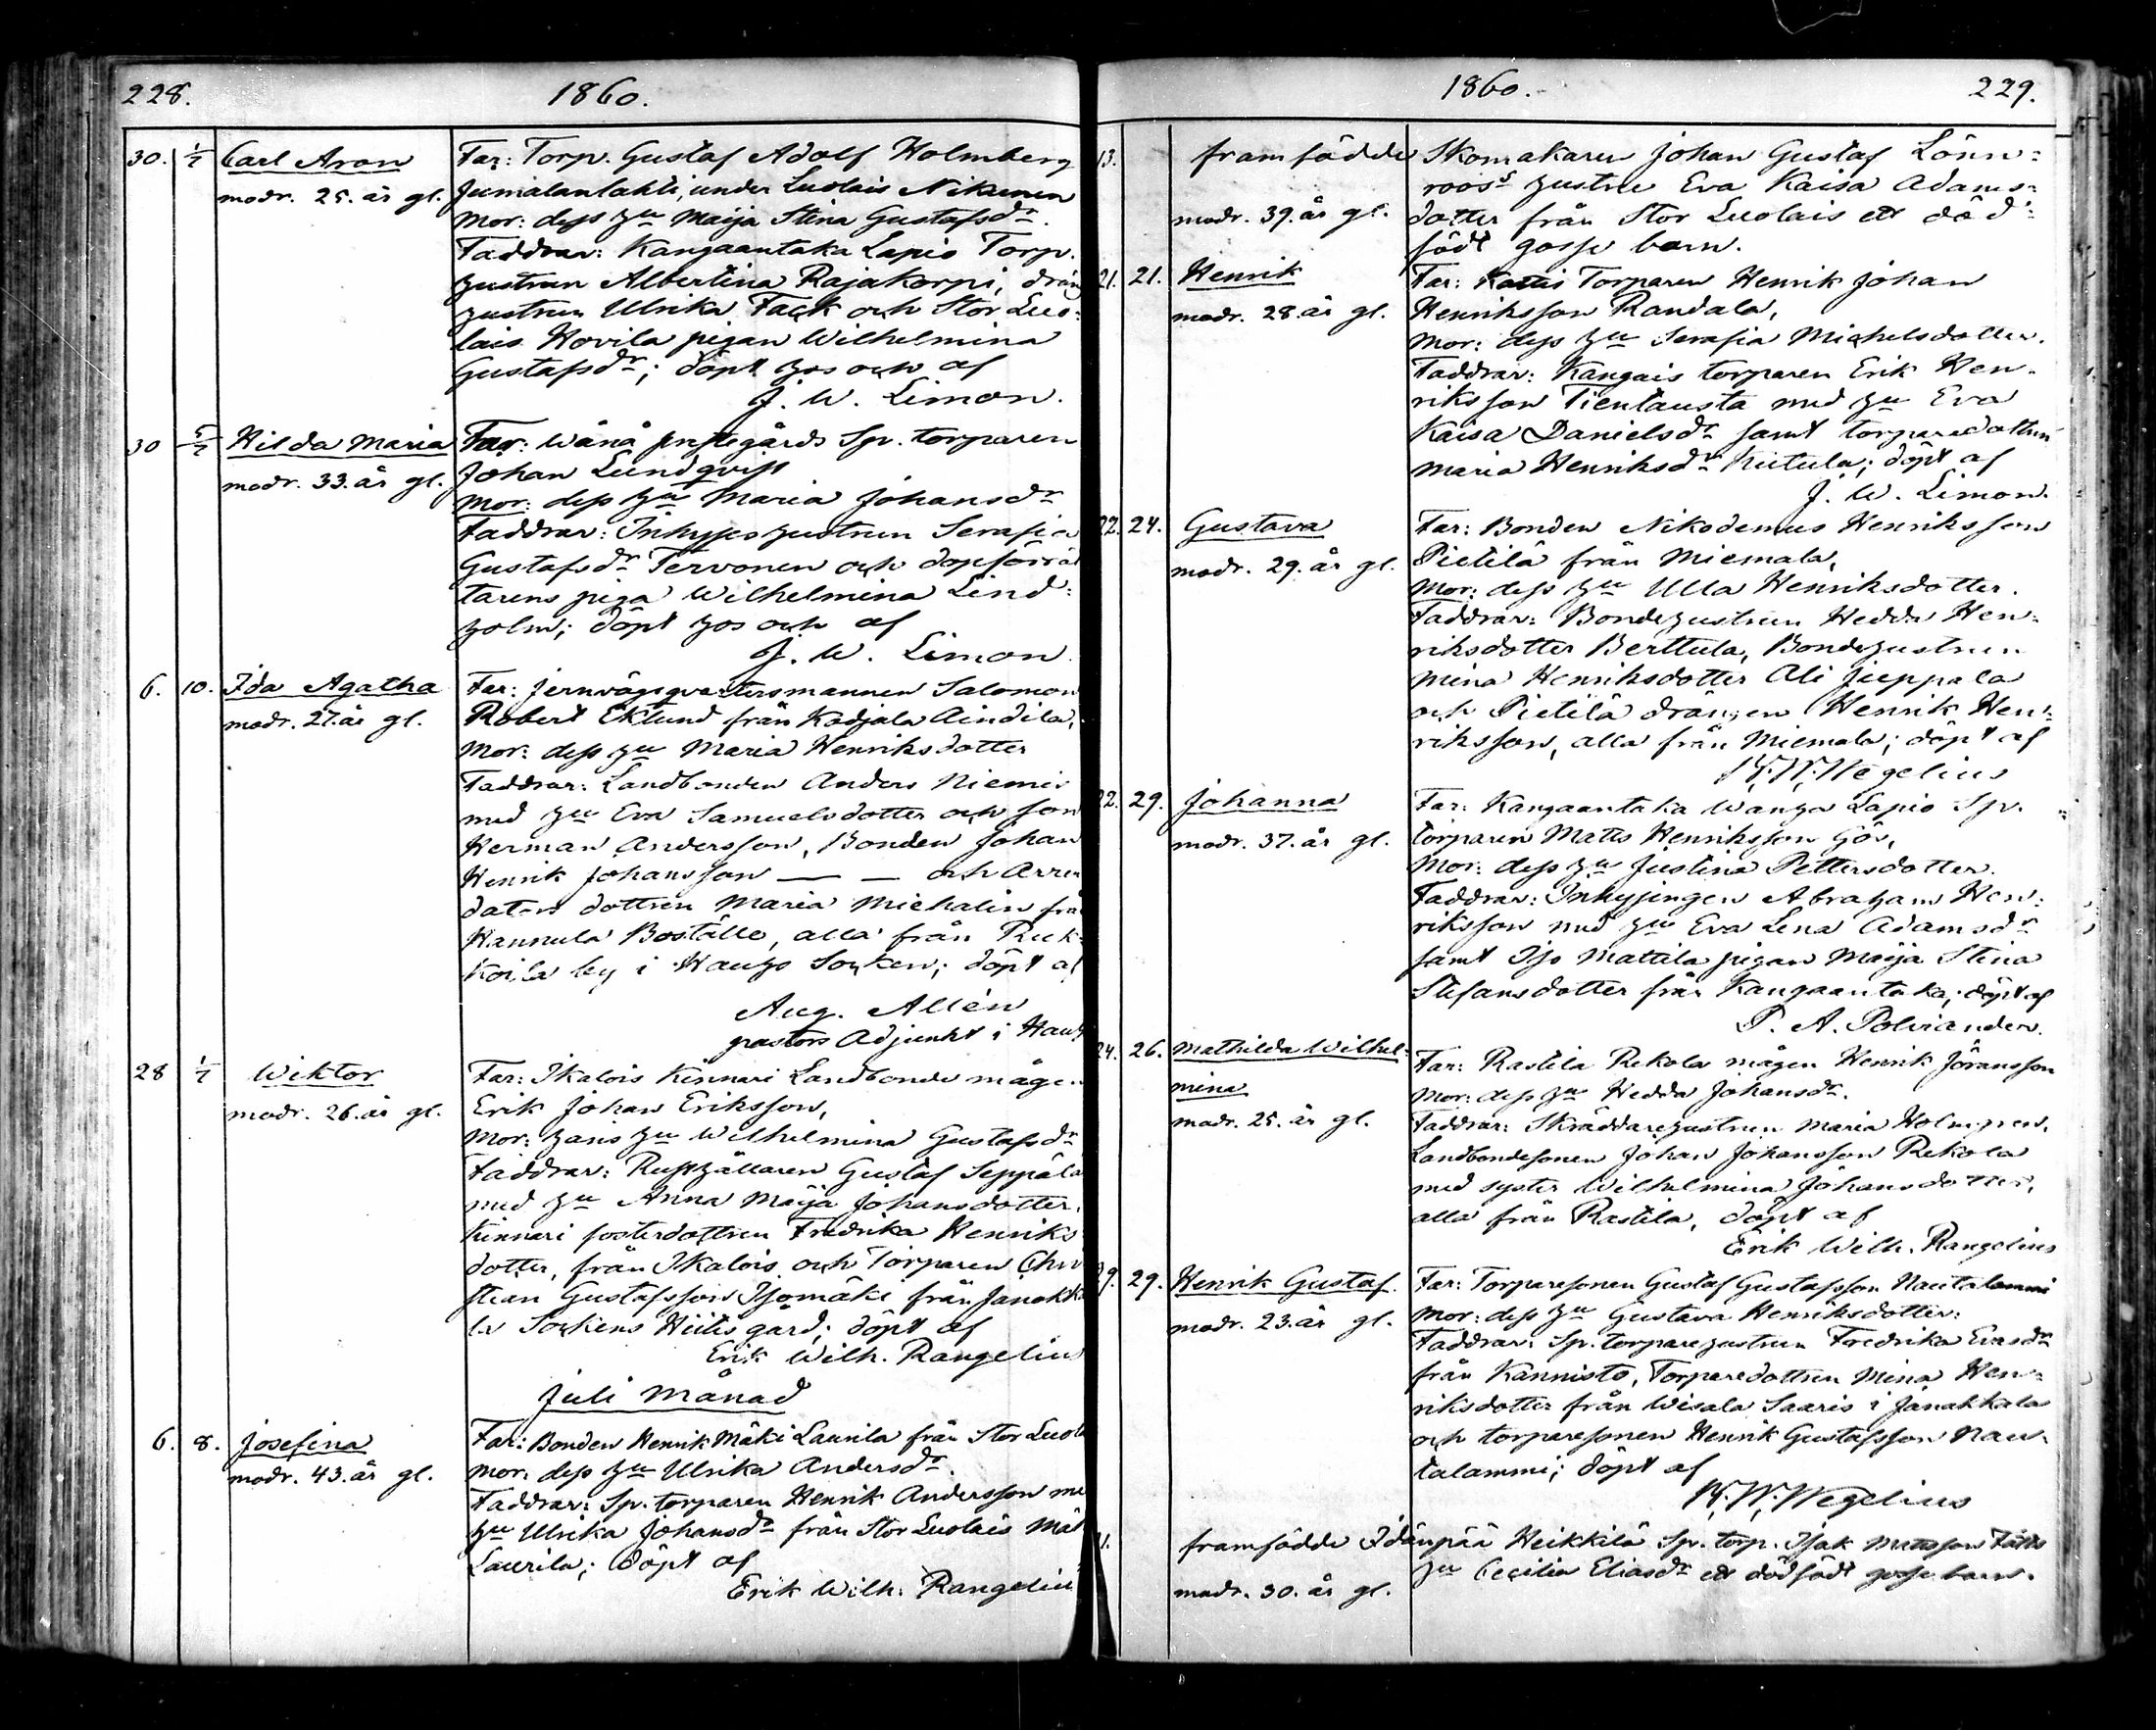 228.
1860.
30. 1/7 Carl Aron
modr. 25. år gl.
Far: Torp. Gustaf Adolf Holmberg
Jumalanlahti, under Luolais Nikunen
Mor: dess hu Maija Stina Gustafsdr.
Faddrar: Kangaantaka Lapio Torp.
hustrun Albertina Rajakorpi, dräng
hustrun Ulrika Fack och Stor Luo=
lais Hovila pigan Wilhelmina
Gustafsdr; döpt hos och af
J. W. Limon.
30 5/7 Hilda Maria
modr. 33. år gl.
Far: Wånå prestegårds Sp. torparen
Johan Lundqvist
Mor: dess hu Maria Johansdr
Faddrar: Inhyses hustrun Serafia
Gustafsdr Tervonen och dopförrät
tarens piga Wilhelmina Lind=
holm; döpt hos och af
J. W. Limon.
6. 10. Ida Agatha
modr. 27. år gl.
Far: Jernvägsqvartersmannen Salomon
Robert Eklund från Kadjala Aindila,
Mor: dess hu Maria Henriksdotter
Faddrar: Landbonden Anders Niemis
med hu Eva Samuelsdotter och son
Herman Andersson, Bonden Johan
Henrik Johansson — — och Arren
dators dottren Maria Michalin från
Hannula Boställe, alla från Ruk=
koila by i Hauho Socken; döpt af
Aug. Allén
pastors Adjunkt i Hauh
28 1/7 Wiktor
modr. 26. år gl.
Far: Ikalois Kinnari Landbonde mågen
Erik Johan Eriksson,
Mor: hans hu Wilhelmina Gustafsdr
Faddrar: Rusthållaren Gustaf Seppälä
med hu Anna Maija Johansdotter,
Kinnari fosterdottren Fredrika Henriks
dotter, från Ikalois och Torparen Chri
stian Gustafsson Isomäki från Janakka
la Sockens Hiitis gård; döpt af
Erik Wilh. Rangelius
Juli Månad
6. 8. Josefina
modr. 43. år gl.
Far: Bonden Henrik Mäki Laurila från Stor Luola
Mor: dess hu Ulrika Andersdr.
Faddrar: Sp. torparen Henrik Andersson me
hu Ulrika Johansdr från Stor Luolais Mäk
Laurila; döpt af
Erik Wilh. Rangelius
1860.
229.
13. framfödde Skomakaren Johan Gustaf Lönn=
roos's hustru Eva Kaisa Adams=
modr. 39. år gl. dotter från Stor Luolais ett död=
födt gosse barn.
21. 21. Henrik
modr. 28. år gl.
Far: Kattis Torparen Henrik Johan
Henriksson Randala,
Mor: dess hu Serafia Michelsdotter.
Faddrar: Kangais torparen Erik Hen=
riksson Tientausta med hu Eva
Kaisa Danielsdr samt torparedottren
Maria Henriksdr Kiitula; döpt af
J. W. Limon.
22. 24. Gustava
modr. 29. år gl.
Far: Bonden Nikodemus Henriksson
Pietilä från Miemala,
Mor: dess hu Ulla Henriksdotter.
Faddrar: Bondehustrun Hedda Hen=
riksdotter Berttula, Bondehustrun
Mina Henriksdotter Ali Jieppala
och Pietilä drängen Henrik Hen=
riksson, alla från Miemala; döpt af
W. Wegelius
22. 29. Johanna
modr. 37. år gl.
Far: Kangaantaka Wanha Lapio Sp.
torparen Matts Henriksson Gös,
Mor: dess hu Justina Pettersdotter.
Faddrar: Inhysingen Abraham Hen=
riksson med hu Eva Lena Adamsdr
samt Iso Mattila pigan Maija Stina
Stefansdotter från Kangaantaka; döpt af
P. A. Polviander.
24. 26. Mathilda Wilhel=
mina
modr. 25. år gl.
Far: Rastila Rekola mågen Henrik Jöransson
Mor: dess hu Hedda Johansdr.
Faddrar: Skräddarehustrun Maria Holmgren,
Landbondesonen Johan Johansson Rekola
med syster Wilhelmina Johansdotter,
alla från Rastila, döpt af
Erik Wilh. Rangelius
29. 29. Henrik Gustaf
modr. 23. år gl.
Far: Torparesonen Gustaf Gustafsson Nautalammi
Mor: dess hu Gustava Henriksdotter.
Faddrar: Sp. torparehustrun Fredrika Evasdr
från Kannisto, Torparedottren Mina Hen=
riksdotter från Wisala Saaris i Janakkala
och torparesonen Henrik Gustafsson Nau=
talammi; döpt af
W. Wegelius
framfödde Idänpää Heikkilä Sp. torp. Isak Mattsson
modr. 30. år gl. hu Cecilia Eliasdr ett dödfödt gosse barn.